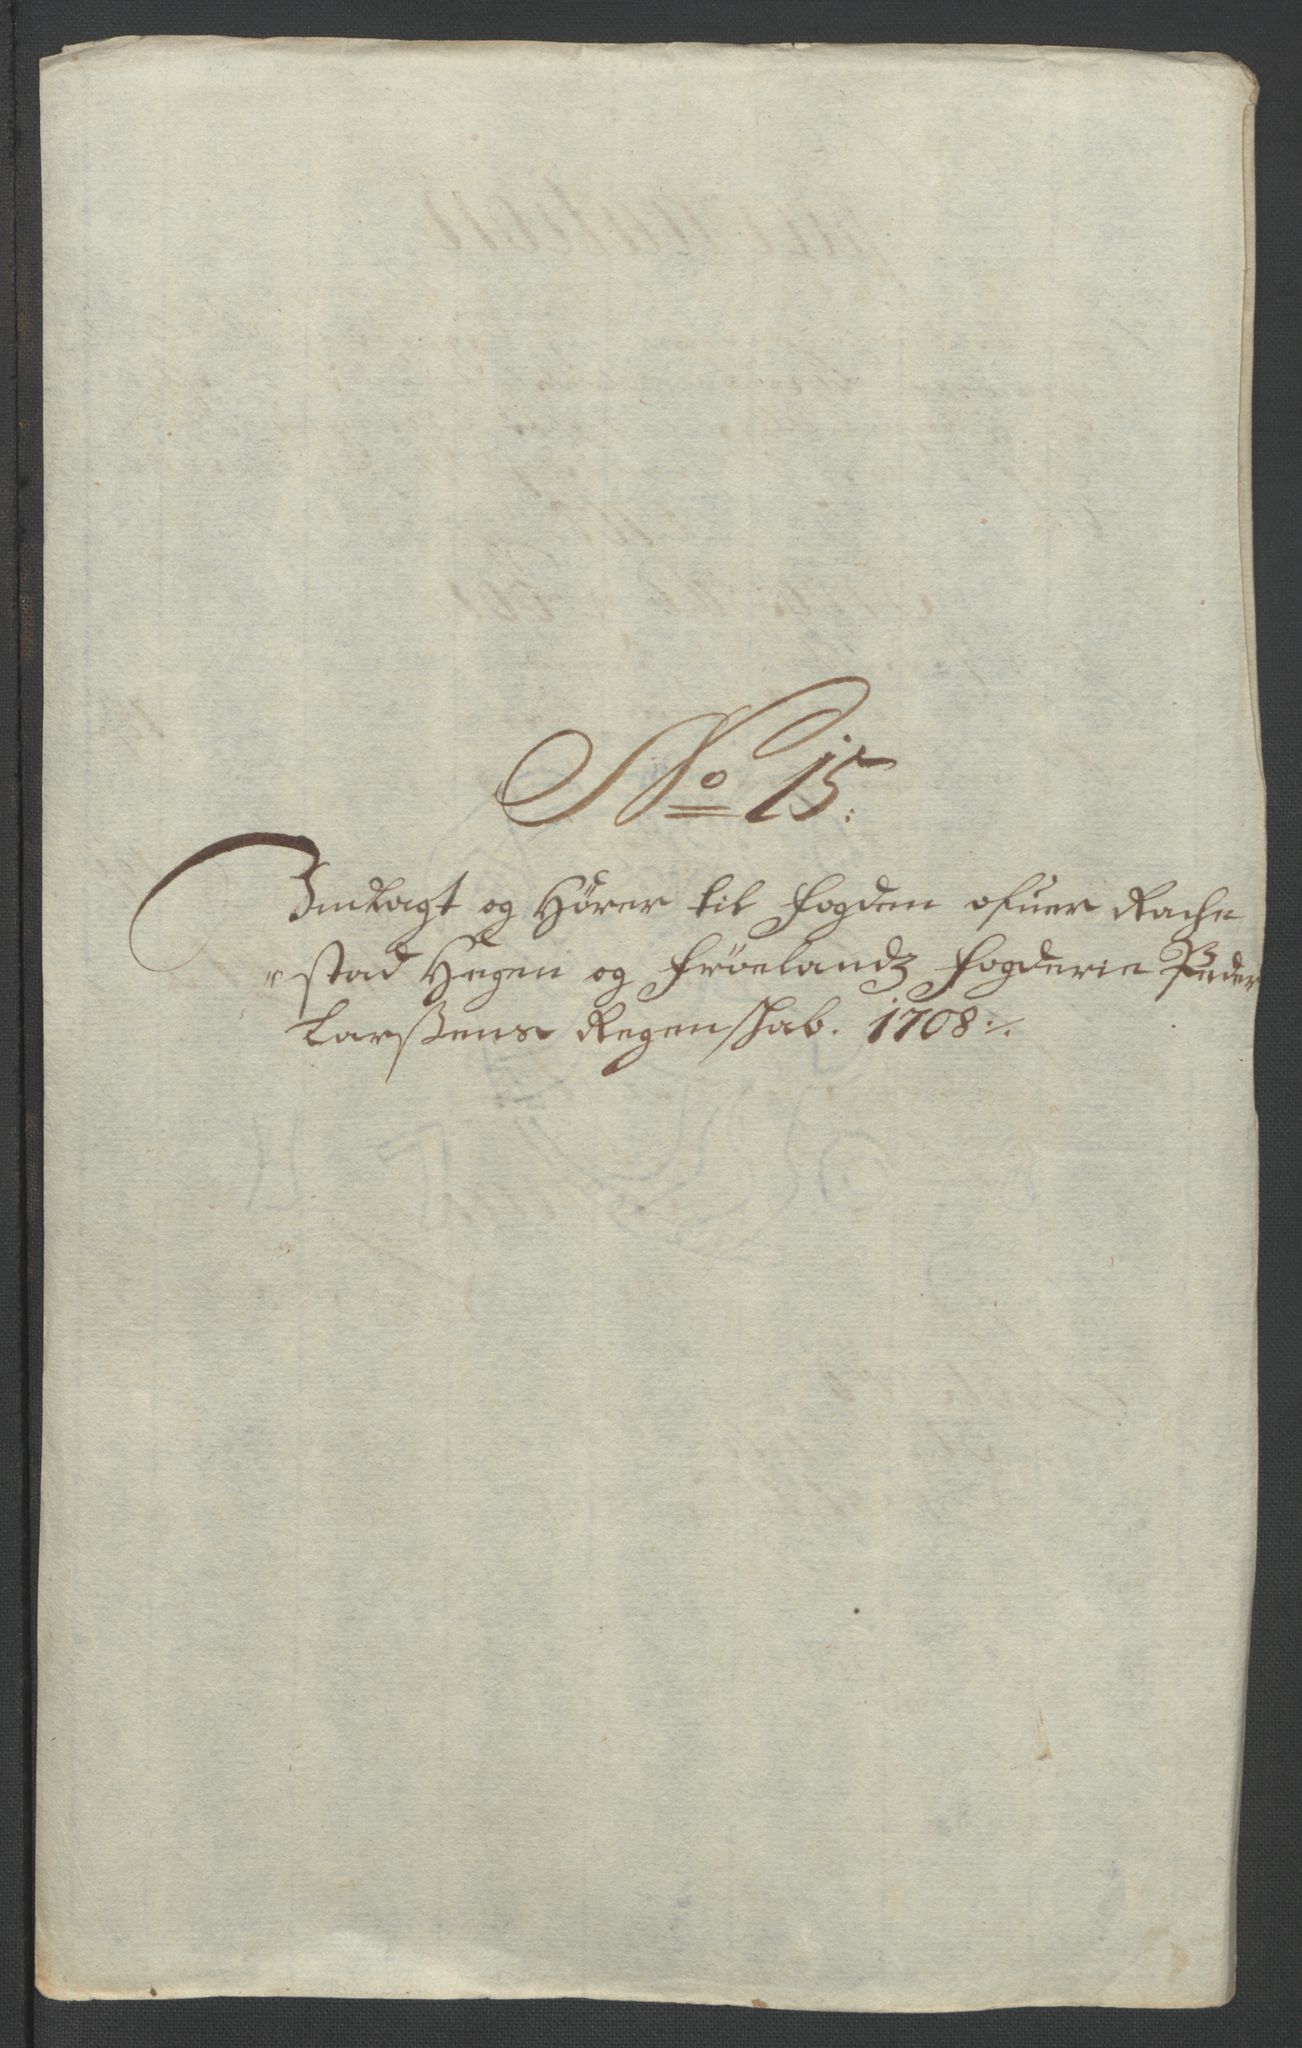 No 15:
Indlagt og Hører til fogden ofuer Rache
"stad Heggen og Frøelands fogderie Peder
Larsens Regenskab. 1708 :/.